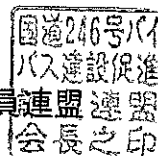 国道246号バイ
パス建設促進
員連盟
連盟
会長之印